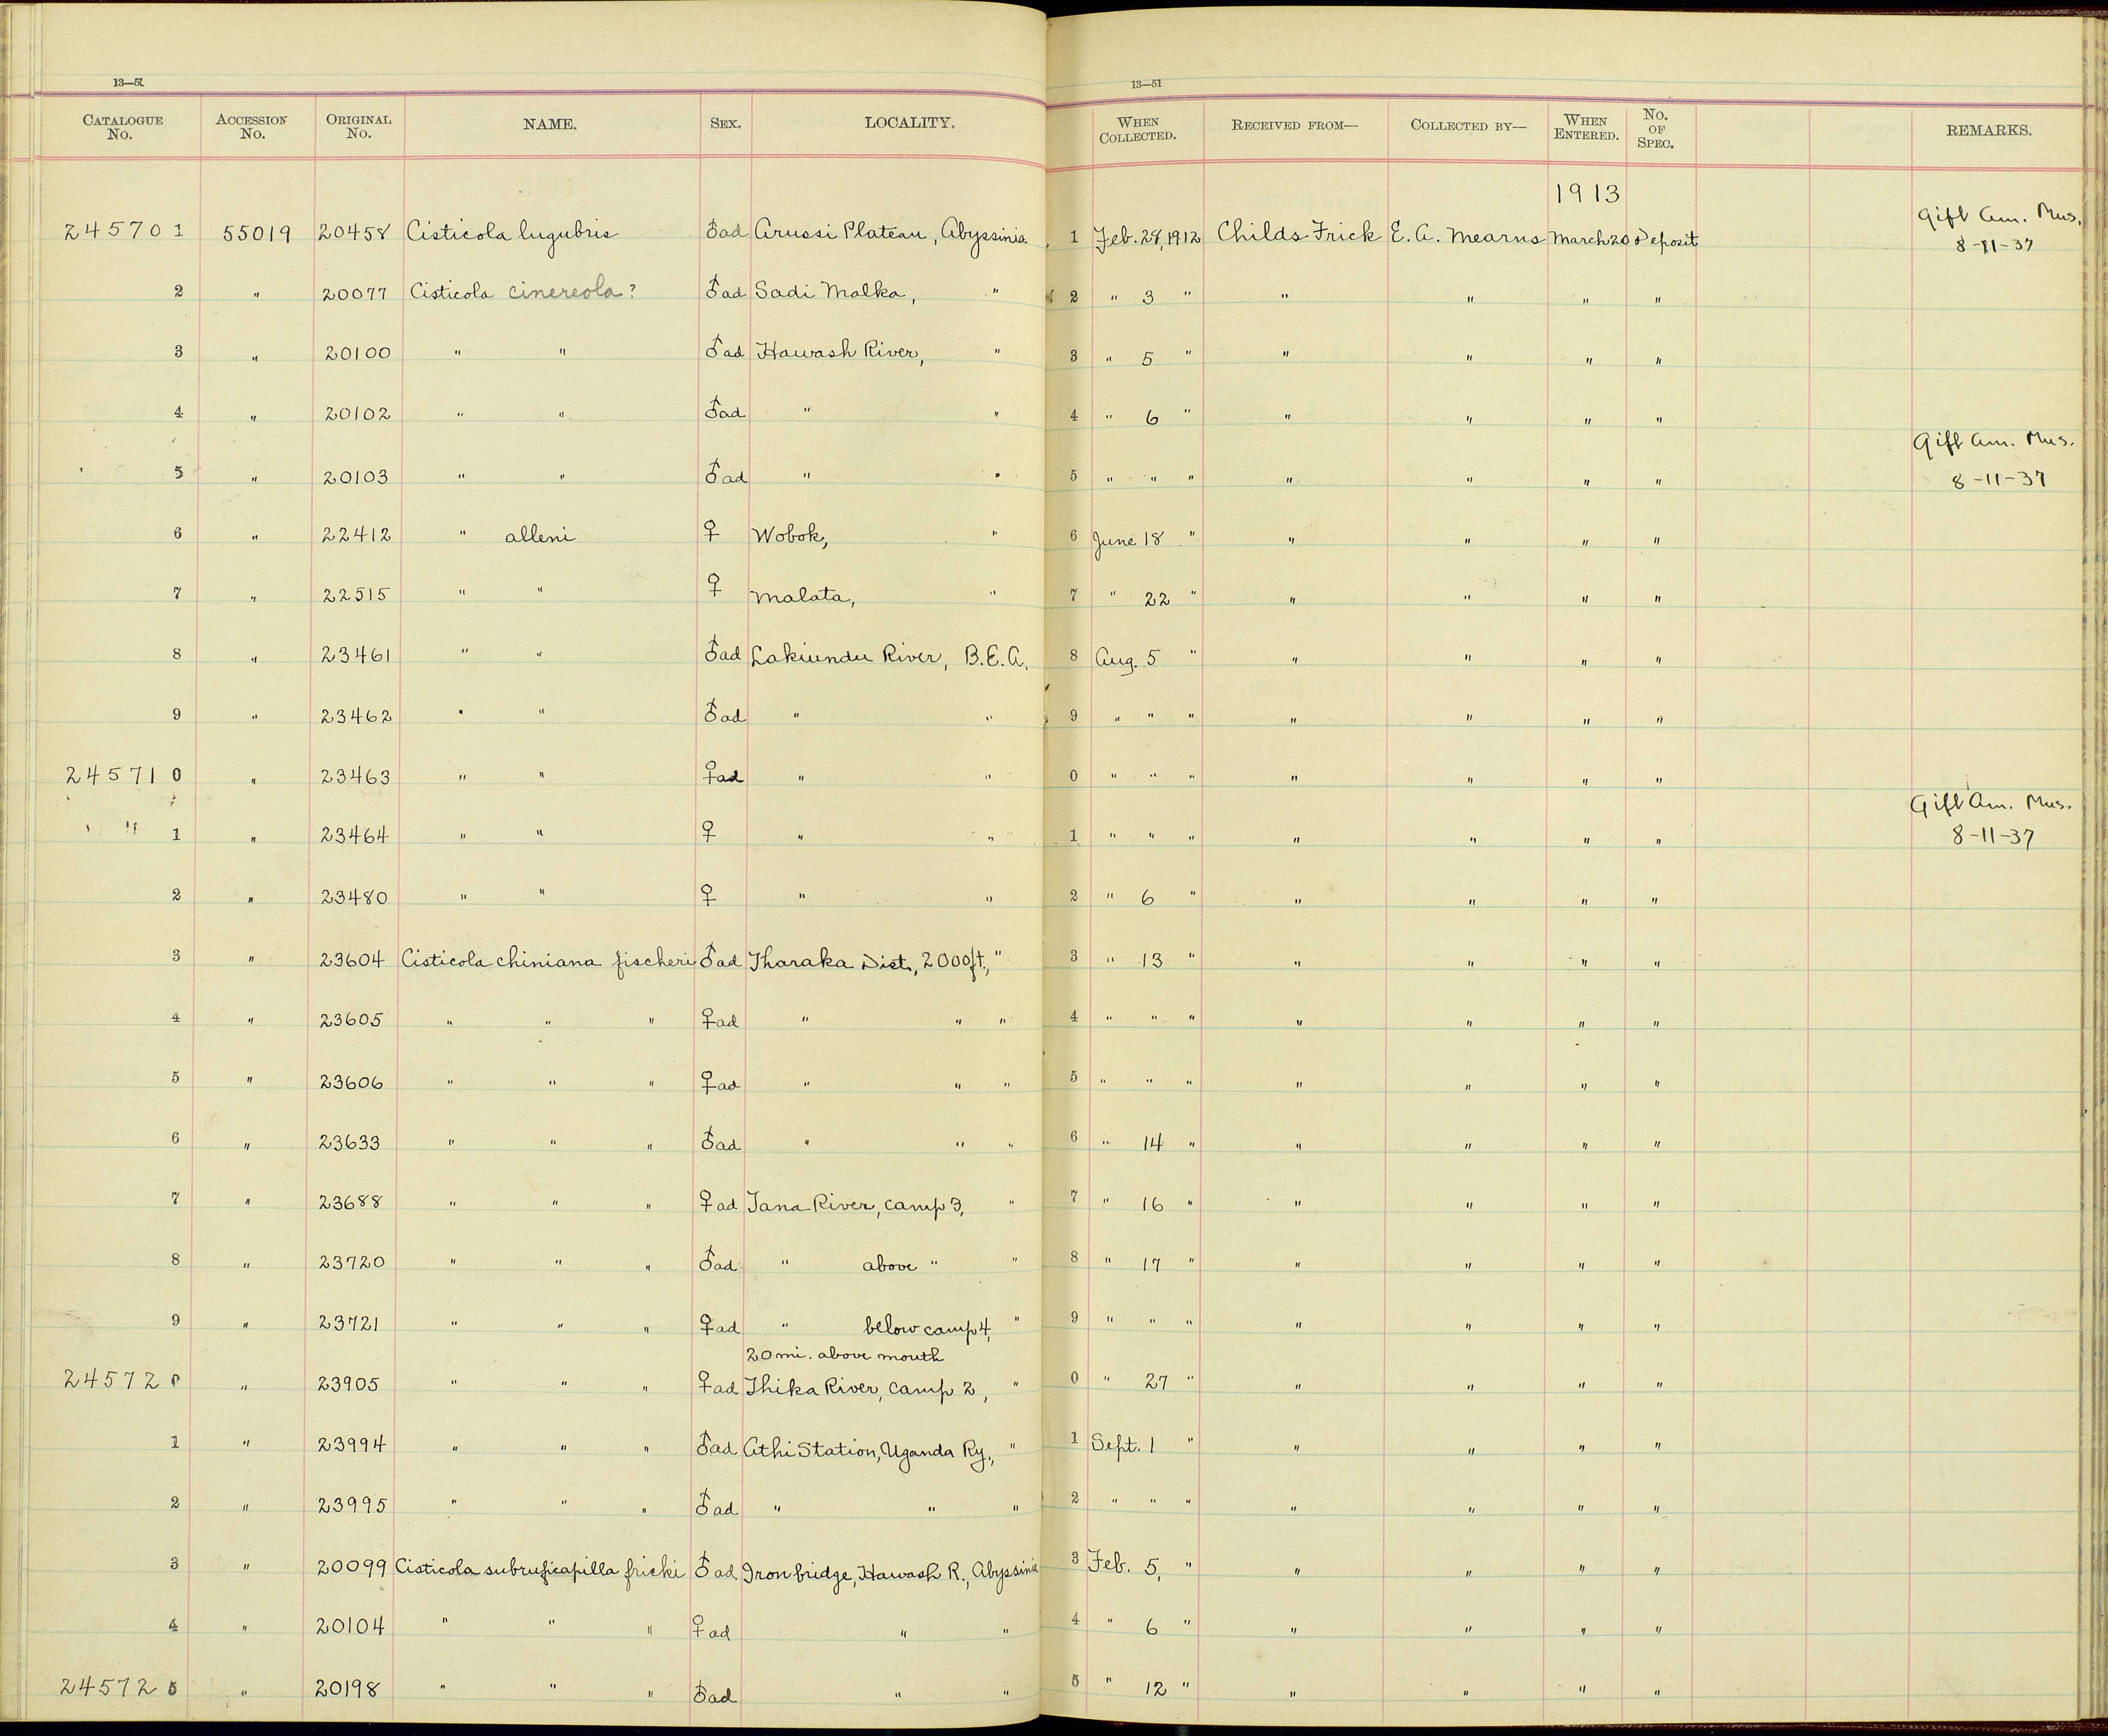 13—51 13—51
CATALOGUE No. ACCESSION No. ORIGINAL No. NAME. SEX. LOCALITY. WHEN COLLECTED. RECEIVED FROM— COLLECTED BY— WHEN ENTERED. No. OF SPEC. REMARKS.
1913
Gift Am. Mus.
245701 55019 20458 Cisticola lugubris ♂ad Arussi Plateau, Abyssinia 1 Feb. 28, 1912 Childs Frick E. A. Mearns March 20 Deposit 8-11-37
2 " 20077 Cisticola cinereola? ♂ad Sadi Malka, " 2 " 3 " " " " "
3 " 20100 " " ♂ad Hawash River, " 3 " 5 " " " " "
4 " 20102 " " ♂ad " " 4 " 6 " " " " "
Gift Am. Mus.
5 " 20103 " " ♂ad " " 5 " " " " " " " 8-11-37
6 " 22412 " alleni ♀ Wobok, " 6 June 18 " " " " "
7 " 22515 " " ♀ Malata, " 7 " 22 " " " " "
8 " 23461 " " ♂ad Lakiundu River, B.E.A. 8 Aug. 5 " " " " "
9 " 23462 " " ♂ad " " 9 " " " " " " "
245710 " 23463 " " ♀ad " " 0 " " " " " " "
Gift Am. Mus.
" 1 " 23464 " " ♀ " " 1 " " " " " " " 8-11-37
2 " 23480 " " ♀ " " 2 " 6 " " " " "
3 " 23604 Cisticola chiniana fischeri ♂ad Tharaka Dist., 2000ft., " 3 " 13 " " " " "
4 " 23605 " " " ♀ad " " " 4 " " " " " " "
5 " 23606 " " " ♀ad " " " 5 " " " " " " "
6 " 23633 " " " ♂ad " " " 6 " 14 " " " " "
7 " 23688 " " " ♀ad Tana River, camp 3, " 7 " 16 " " " " "
8 " 23720 " " " ♂ad " above " " 8 " 17 " " " " "
9 " 23721 " " " ♀ad " below camp 4, " 9 " " " " " " "
20 mi. above mouth
245720 " 23905 " " " ♀ad Thika River, camp 2, " 0 " 27 " " " " "
1 " 23994 " " " ♂ad Athi Station, Uganda Ry., " 1 Sept. 1 " " " " "
2 " 23995 " " " ♂ad " " " 2 " " " " " " "
3 " 20099 Cisticola subruficapilla fricki ♂ad Iron bridge, Hawash R., Abyssinia 3 Feb. 5, " " " " "
4 " 20104 " " " ♀ad " " 4 " 6 " " " " "
245725 " 20198 " " " ♂ad " " 5 " 12 " " " " "